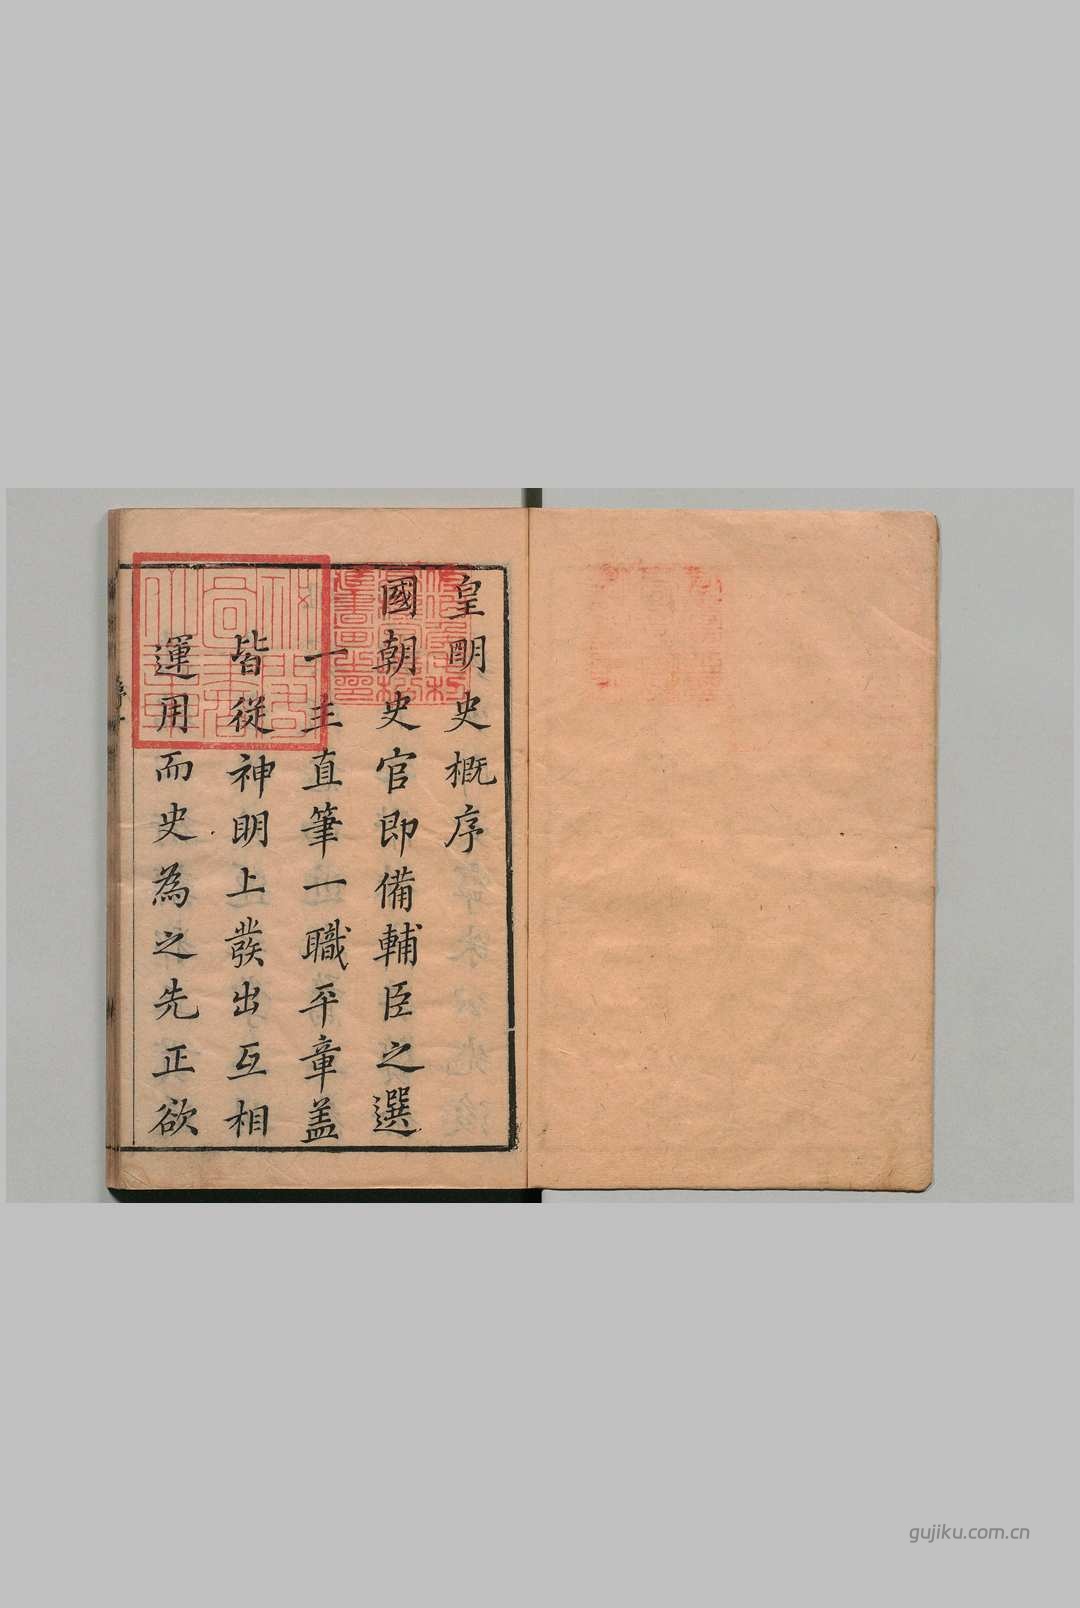 皇明史概序
國朝史官即備輔臣之選
一主直筆一職平章盖
皆從神明上發出互相
運用而史為之先正欲
gujiku.com.cn